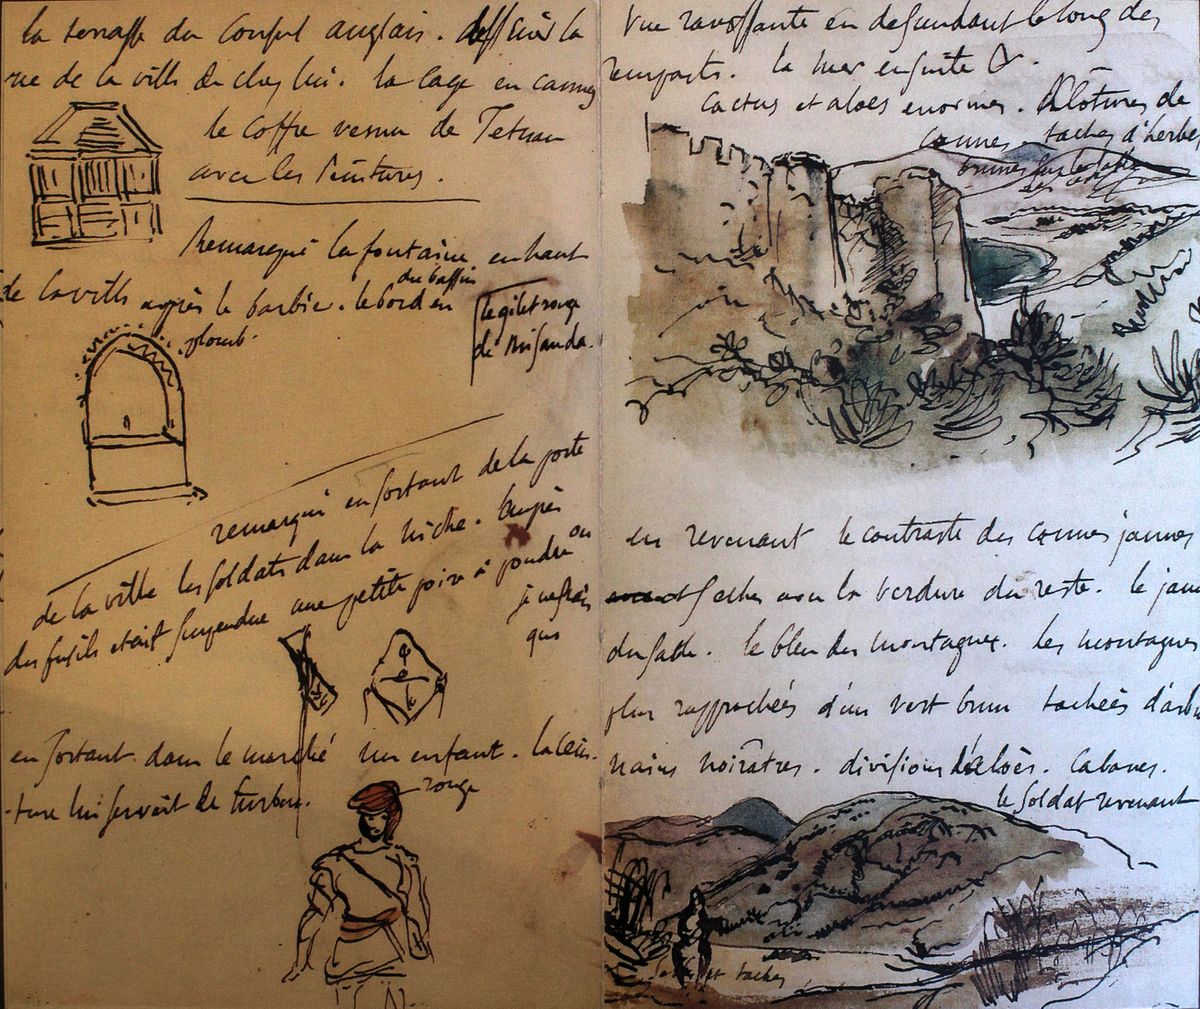 la terrasse du Consul anglais. dessiner la
vue de la ville de chez lui. la cage en cannes
le coffre venu de Tetuan
avec les Peintures.
Remarqué la fontaine en haut
de la ville après le barbier. le bord du bassin en
plomb.
le gilet rouge
de
remarqué en sortant de la porte
de la ville les soldats dans la niche. Auprès
des fusils était suspendue une petite poire à poudre ou
je ne sais
quoi
en sortant dans le marché un enfant. la cein-
-ture lui servait de turban.
rouge
Vue ravissante en descendant le long des
remparts. la mer ensuite &.
Cactus et aloès enormes. Clotures de
cannes, taches d'herbes
brunes sur le sable
en revenant le contraste des cannes jaunes
et seches avec la verdure du reste. le jaune
du sable. le bleu des montagnes. Les montagnes
plus rapprochées d'un vert brun tachées d'arbus
nains noirâtres. divisions d'aloès. Cabanes.
le soldat revenant
et taches